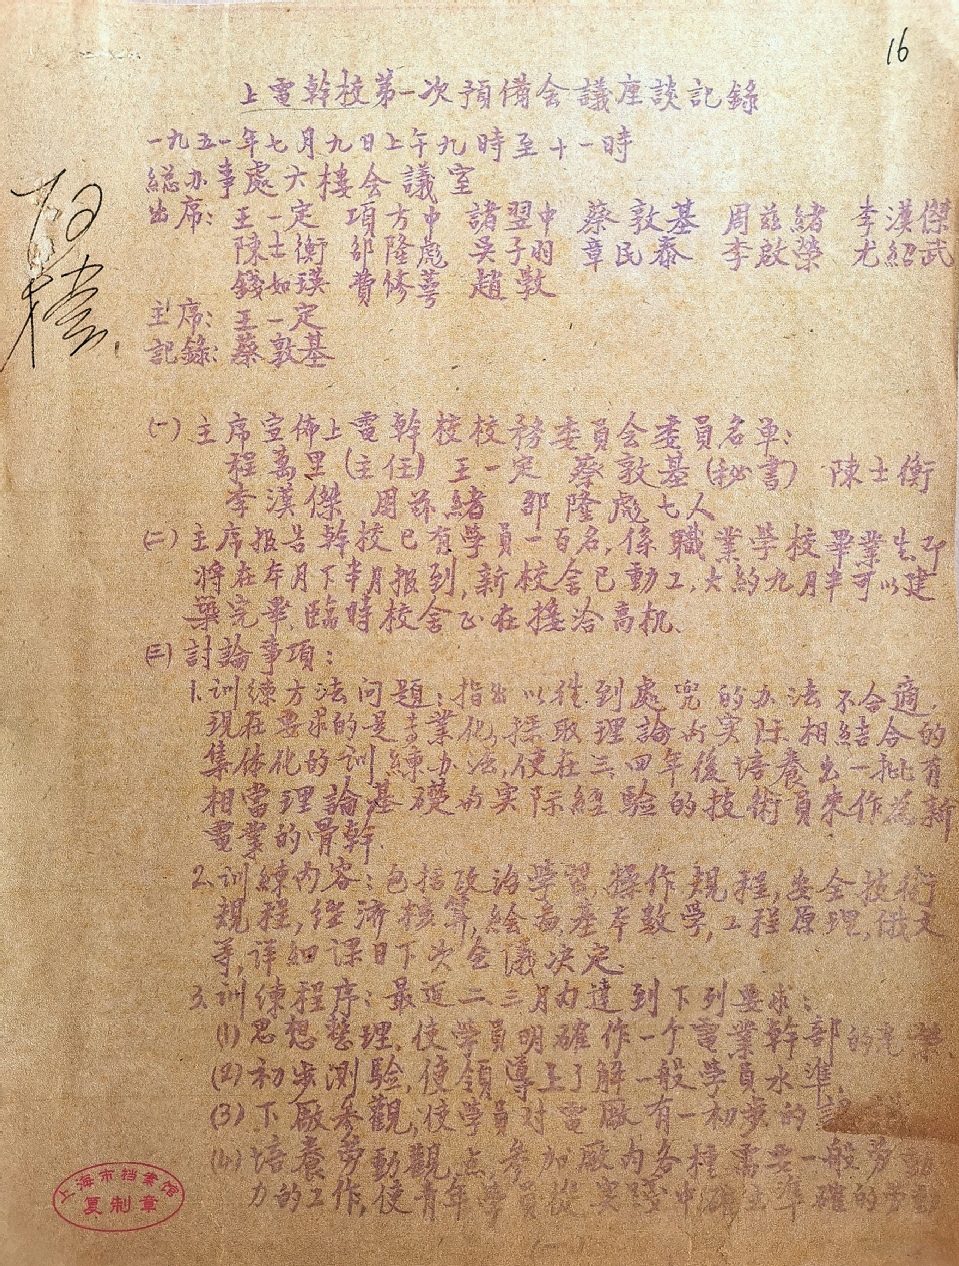 16
上電幹校第一次預備会議座談記錄
一九五一年七月九日上午九時至十一時
総办事處六樓会議室
出席：王一定 項方中 諸翌中 蔡敦基 周茲緒 李漢傑
陳士衡 邵隆彪 吳子羽 章民泰 李啟榮 尤紹武
錢如瑛 費修萼 趙敦
主席：王一定
記錄：蔡敦基
(一) 主席宣佈上電幹校校務委員会委員名单：
程萬里(主任) 王一定 蔡敦基(秘書) 陳士衡
李漢傑 周茲緒 邵隆彪七人
(二) 主席报告幹校已有學員一百名，係職業學校畢業生即
將在本月下半月报到，新校舍已動工，大約九月半可以建
築完畢，臨時校舍正在接洽高机。
(三) 討論事項：
1. 训練方法问題：指出以往到處兜的办法不合適，
現在要求的是专業化，採取理論與实际相結合的
集体化的训練办法，使在三、四年後培養出一批有
相當理論基礎與实际經验的技術員來作為新
電業的骨幹。
2. 训練内容：包括政治學習，操作規程，安全技術
規程，經济核算，绘畫，基本数學，工程原理，俄文
等，詳細课目下次会議决定。
3. 训練程序：最近二、三月内達到下列要求：
(1) 思想整理，使學員明確作一个電業幹部的光榮，
(2) 初步测驗，使領導上了解一般學員水準，
(3) 下廠参觀，使學員对電廠有一初步的認
(4) 培養劳動觀点，参加廠内各種需要一般劳動
力的工作，使青年學員從实踐中確立準確的劳動
(一)
上海市档案馆
复制章